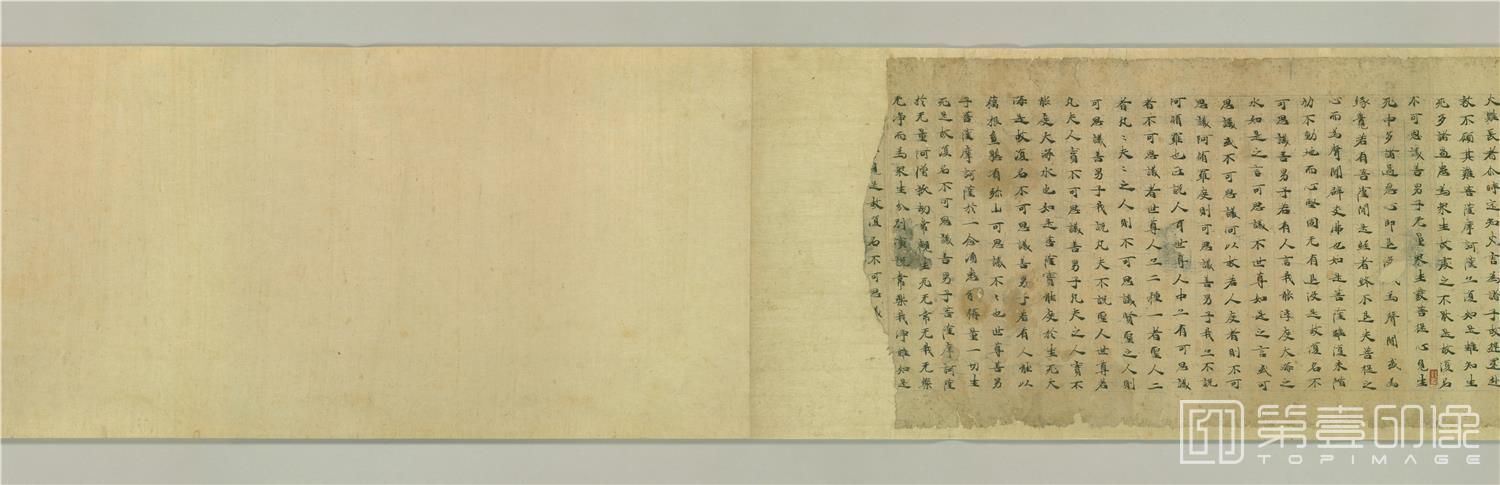 火難長者尒時定知火灾為諸子故旋還赴
救不顧其難菩薩摩訶薩亦復如是雖知生
死多諸過惡為衆生故處之不厭是故復名
不可思議善男子无量衆生發菩提心見生
死中多諸過惡心即退為聲聞或為
緣覺若有菩薩聞是經者終不退失菩提之
心而為聲聞辟支佛也如是菩薩雖復未階
初不動地而心堅固无有退沒是故復名不
可思議善男子若有人言我能浮度大海之
水如是之言可思議不世尊如是之言或可
思議或不可思議何以故若人度者則不可
思議阿脩羅度則可思議善男子我亦不說
阿脩羅也正說人耳世尊人中亦有可思議
者不可思議者世尊人亦二種一者聖人二
者凡〻夫〻之人則不可思議賢聖之人則
可思議善男子我說凡夫不說聖人世尊若
凡夫人實不可思議善男子凡夫之人實不
能度大海水也如是菩薩實能度於生死大
海是故復名不可思議善男子若有人能以
藕根絲懸須弥山可思議不〻也世尊善男
子菩薩摩訶薩於一念頃悉能稱量一切生
死是故復名不可思議善男子菩薩摩訶薩
於无量阿僧祇劫常觀生死无常无我无樂
无淨而為衆生分別演說常樂我淨雖如是
是故復名不可思議
第壹印像
TOPIMAGE